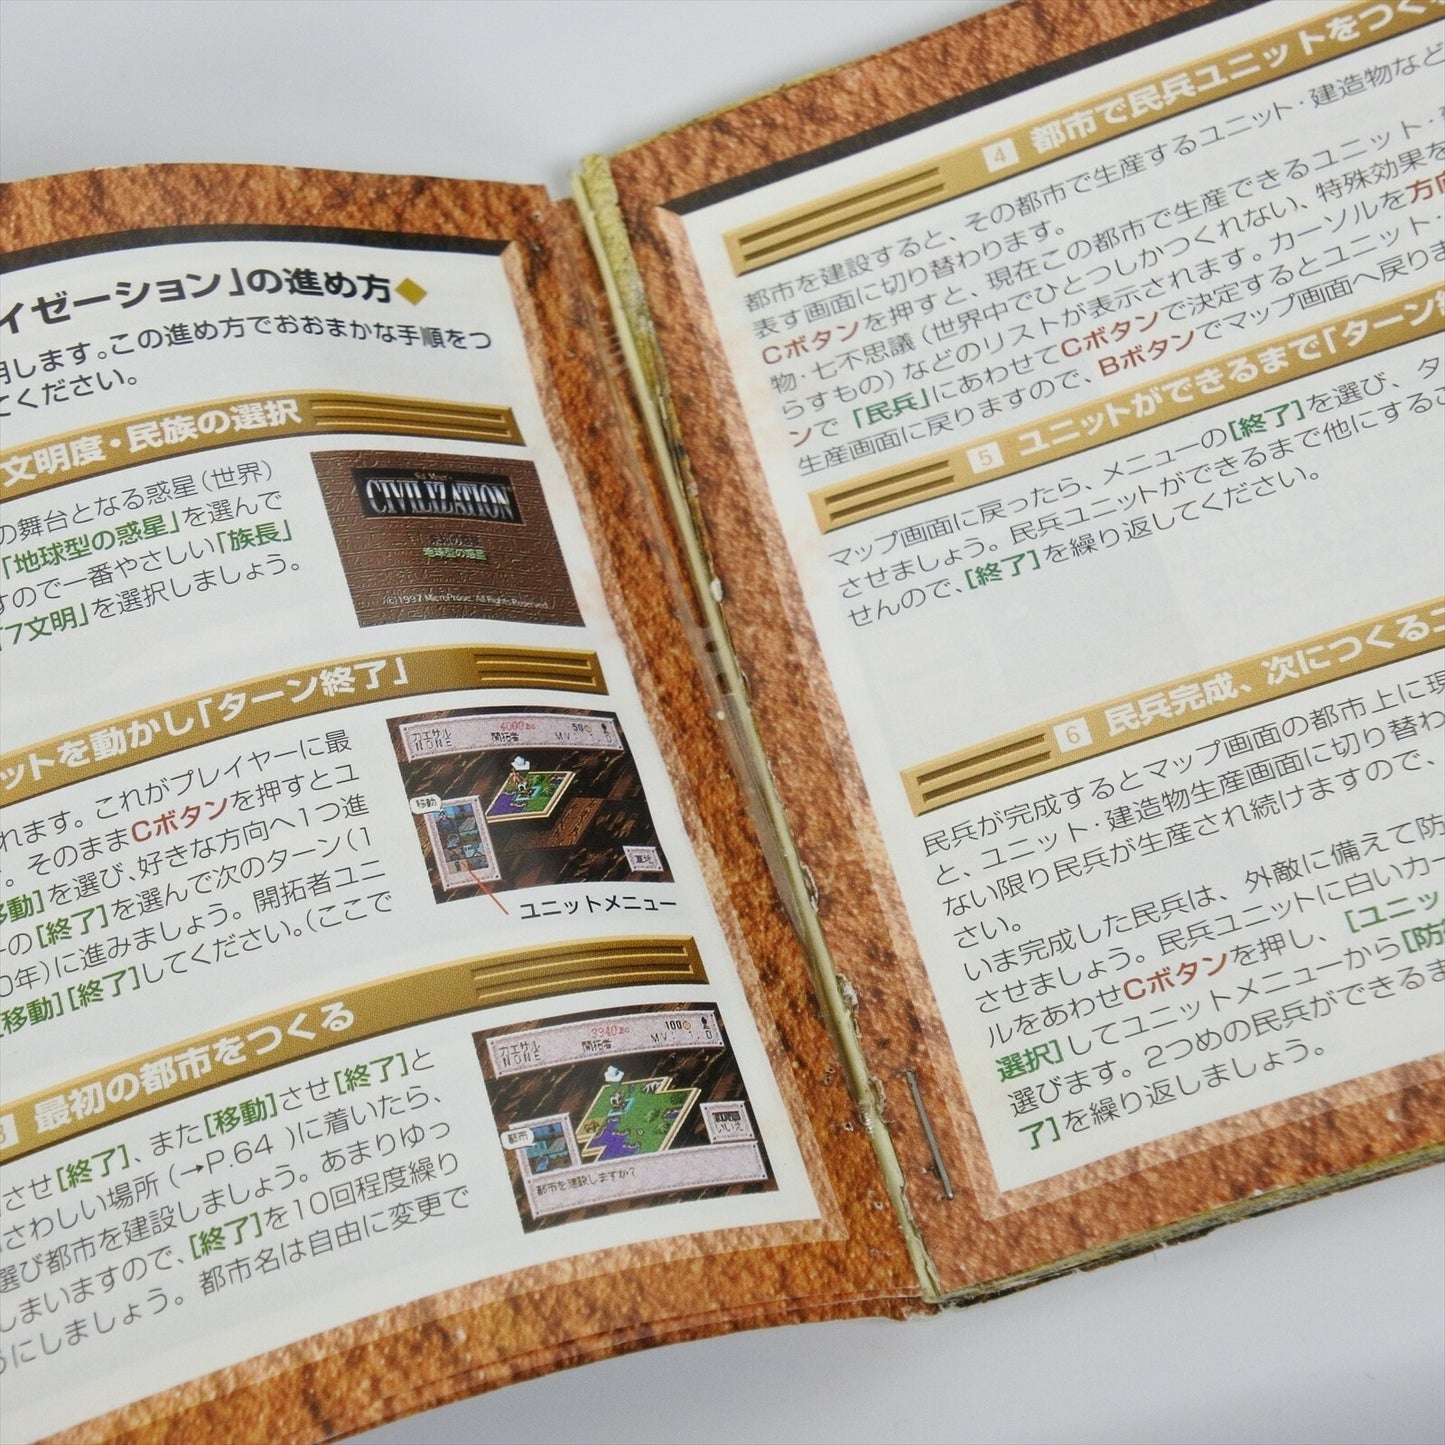 イゼーション」の進め方◆
明します。この進め方でおおまかな手順をつ
てください。
文明度・民族の選択
の舞台となる惑星(世界)
「地球型の惑星」を選んで
すので一番やさしい「族長」
「7文明」を選択しましょう。
Sid Meier's
CIVILIZATION
地球型の惑星
(c)1997 MicroProse. All Rights Reserved
ットを動かし「ターン終了」
れます。これがプレイヤーに最
。そのままCボタンを押すとユ
移動]を選び、好きな方向へ1つ進
ーの[終了]を選んで次のターン(1
0年)に進みましょう。開拓者ユニ
[移動][終了]してください。(ここで
カエサル
NONE
4000BC
開拓者
50
MV:
移動
草地
ユニットメニュー
3 最初の都市をつくる
させ[終了]、また[移動]させ[終了]と
さわしい場所(→P.64 )に着いたら、
選び都市を建設しましょう。あまりゆっ
しまいますので、[終了]を10回程度繰り
うにしましょう。都市名は自由に変更で
カエサル
NONE
3940BC
開拓者
100
MV: 1.0
都市
いいえ
都市を建設しますか?
4 都市で民兵ユニットをつくる
都市を建設すると、その都市で生産するユニット・建造物など
表す画面に切り替わります。
Cボタンを押すと、現在この都市で生産できるユニット・建
物・七不思議(世界中でひとつしかつくれない、特殊効果を
らすもの)などのリストが表示されます。カーソルを方向
ンで「民兵」にあわせてCボタンで決定するとユニット・
生産画面に戻りますので、Bボタンでマップ画面へ戻りま
5 ユニットができるまで「ターン終
マップ画面に戻ったら、メニューの[終了]を選び、タ
させましょう。民兵ユニットができるまで他にするこ
せんので、[終了]を繰り返してください。
6 民兵完成、次につくるユ
民兵が完成するとマップ画面の都市上に現
と、ユニット・建造物生産画面に切り替わ
ない限り民兵が生産され続けますので、
さい。
いま完成した民兵は、外敵に備えて防
させましょう。民兵ユニットに白いカー
ルをあわせCボタンを押し、[ユニッ
選択]してユニットメニューから[防
選びます。2つめの民兵ができるま
了]を繰り返しましょう。